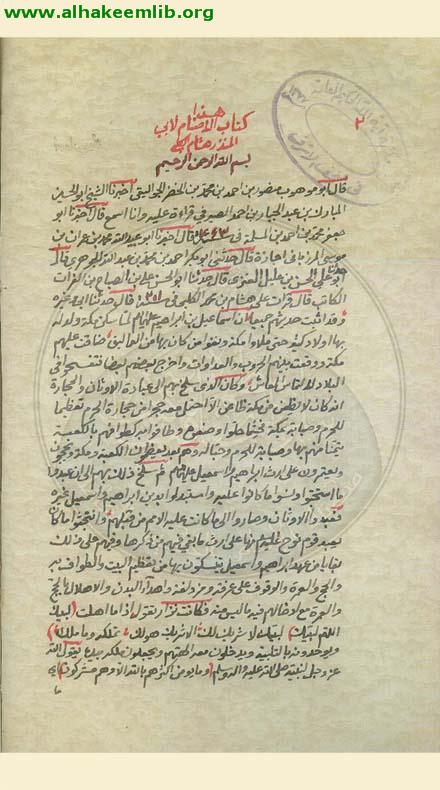 www.alhakeemlib.org
٢
هذا
كتاب الاصنام لابي
المنذر هشام الكلبي
بسم الله الرحمن الرحيم
قال ابو موهوب منصور بن احمد بن محمد بن الخضر الجواليقي اخبرنا الشيخ ابو الحسين
المبارك بن عبد الجبار بن احمد الصيرفي قراءة عليه وانا اسمع قال اخبرنا ابو
جعفر محمد بن احمد بن المسلمة في سنة ٤٦٣ قال اخبرنا ابو عبيد الله محمد بن عمران بن
موسى المرزباني اجازة قال حدثني ابو بكر احمد بن محمد بن عبد الله الجوهري قال
حدثنا ابو علي الحسن بن عليل العنزي قال حدثنا ابو الحسن علي بن الصباح بن الفرات
الكاتب قال قرأت على هشام بن محمد الكلبي في سنة ٢٠١ قال حدثنا ابي وغيره
وقد اثبت حديثهم جميعا ان اسماعيل بن ابراهيم عليهما السلام لما سكن مكة وولد له
بها اولاد كثير حتى ملأوا مكة ونفوا من كان بها من العماليق ضاقت عليهم
مكة ووقعت بينهم الحروب والعداوات واخرج بعضهم بعضا فتفسحوا في
البلاد لالتماس المعاش وكان الذي سلخ بهم الى عبادة الاوثان والحجارة
انه كان لا يظعن من مكة ظاعن الا احتمل معه حجرا من حجارة الحرم تعظيما
للحرم وصبابة بمكة فحيثما حلوا وضعوه وطافوا به كطوافهم بالكعبة
تيمنا منهم بها وصبابة للحرم وحبا له وهم بعد يعظمون الكعبة ومكة ويحجون
ويعتمرون على ارث ابراهيم واسمعيل عليهما السلام ثم سلخ ذلك بهم الى ان عبدوا
ما استحبوا ونسوا ما كانوا عليه واستبدلوا بدين ابراهيم واسمعيل غيره
فعبدوا الاوثان وصاروا الى ما كانت عليه الامم من قبلهم وانتجثوا ما كان
يعبد قوم نوح عليه السلام منها على ارث ما بقي فيهم من ذكرها وفيهم على ذلك
بقايا من عهد ابراهيم واسمعيل يتنسكون بها من تعظيم البيت والطواف به
والحج والعمرة والوقوف على عرفة ومزدلفة واهداء البدن والاهلال بالحج
والعمرة مع ادخالهم فيه ما ليس منه فكانت نزار تقول اذا ما اهلت (لبيك
اللهم لبيك) لبيك لا شريك لك الا شريك هو لك تملكه وما ملك)
ويوحدونه بالتلبية ويدخلون معه الهتهم ويجعلون ملكها بيده يقول الله
عز وجل لنبيه صلى الله عليه واله وسلم (وما يؤمن اكثرهم بالله الا وهم مشركون) اي
ما